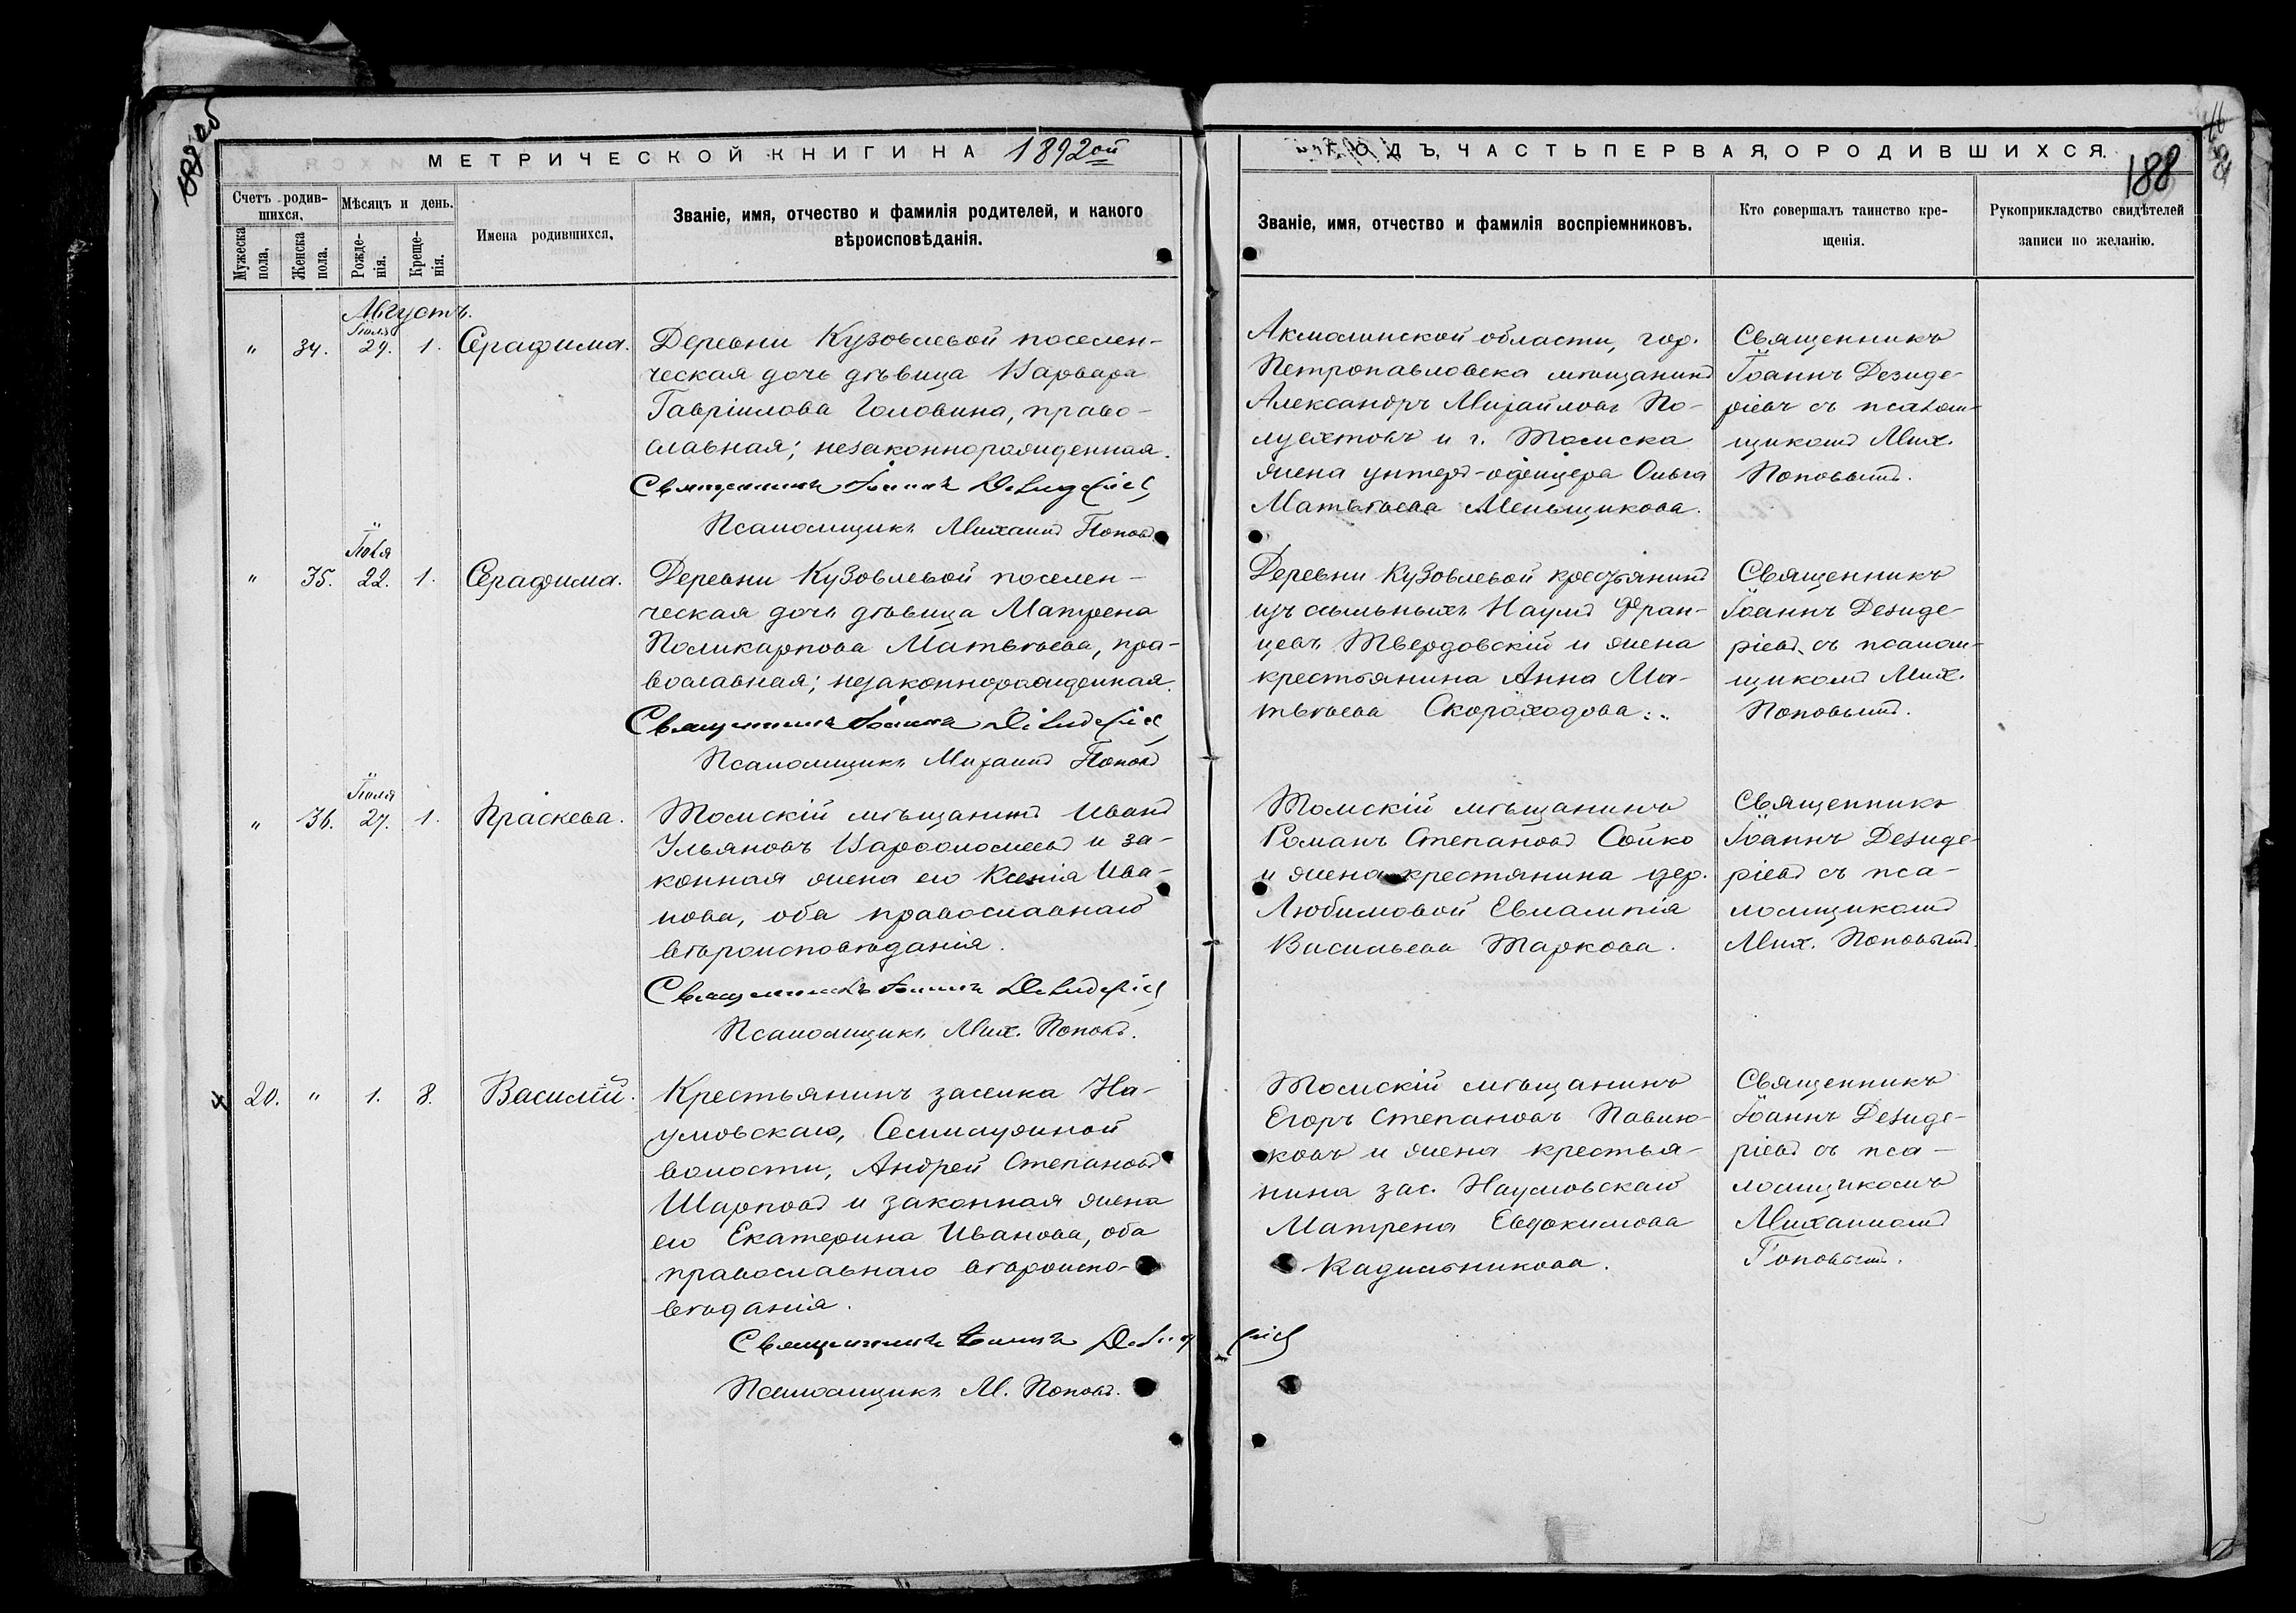 МЕТРИЧЕСКОЙ КНИГИ НА 1892ой
ГОДЪ, ЧАСТЬ ПЕРВАЯ, О РОДИВШИХСЯ.
188
Счетъ родив-
шихся.
Мѣсяцъ и день.
Мужеска
пола.
Женска
пола.
Рожде-
нія.
Креще-
нія.
Имена родившихся.
Званіе, имя, отчество и фамилія родителей, и какого
вѣроисповѣданія.
Званіе, имя, отчество и фамилія воспріемниковъ.
Кто совершалъ таинство кре-
щенія.
Рукоприкладство свидѣтелей
записи по желанію.
Августъ.
Іюля
" 34. 29. 1. Серафима.
Деревни Кузовлевой поселен-
ческая дочь дѣвица Варвара
Гавріилова Головина, право-
славная; незаконнорожденная.
Священникъ Іоаннъ Дезидеріевъ
Псаломщикъ Михаилъ Поповъ
Акмолинской области, гор.
Петропавловска мѣщанинъ
Александръ Михайловъ По-
луехтовъ и г. Томска
жена унтеръ-офицера Ольга
Матвѣева Меньщикова.
Священникъ
Іоаннъ Дезиде-
ріевъ съ псалом-
щикомъ Мих.
Поповымъ.
Іюля
" 35. 22. 1. Серафима.
Деревни Кузовлевой поселен-
ческая дочь дѣвица Матрена
Поликарпова Матвѣева, пра-
вославная; незаконнорожденная.
Священникъ Іоаннъ Дезидеріевъ
Псаломщикъ Михаилъ Поповъ
Деревни Кузовлевой крестьянинъ
изъ ссыльныхъ Наумъ Фран-
цевъ Твердовскій и жена
крестьянина Анна Ма-
твѣева Скороходова.
Священникъ
Іоаннъ Дезиде-
ріевъ съ псалом-
щикомъ Мих.
Поповымъ.
Іюля
" 36. 27. 1. Праскева.
Томскій мѣщанинъ Иванъ
Ульяновъ Варфоломеевъ и за-
конная жена его Ксенія Ива-
нова, оба православнаго
вѣроисповѣданія.
Священникъ Іоаннъ Дезидеріевъ
Псаломщикъ Мих. Поповъ.
Томскій мѣщанинъ
Романъ Степановъ Сойко
и жена крестянина дер.
Любимовой Евлампія
Васильева Таркова.
Священникъ
Іоаннъ Дезиде-
ріевъ съ пса-
ломщикомъ
Мих. Поповымъ.
20. " 1. 8. Василій.
Крестьянинъ засенка На-
умовскаго, Семилужной
волости, Андрей Степановъ
Шарповъ и законная жена
его Екатерина Иванова, оба
православнаго вѣроиспо-
вѣданія.
Священникъ Іоаннъ Дезидеріевъ
Псаломщикъ М. Поповъ.
Томскій мѣщанинъ
Егоръ Степановъ Павлю-
ковъ и жена крестья-
нина зас. Наумовскаго
Матрена Евдокимова
Кадильникова.
Священникъ
Іоаннъ Дезиде-
ріевъ съ пса-
ломщикомъ
Михаиломъ
Поповымъ.